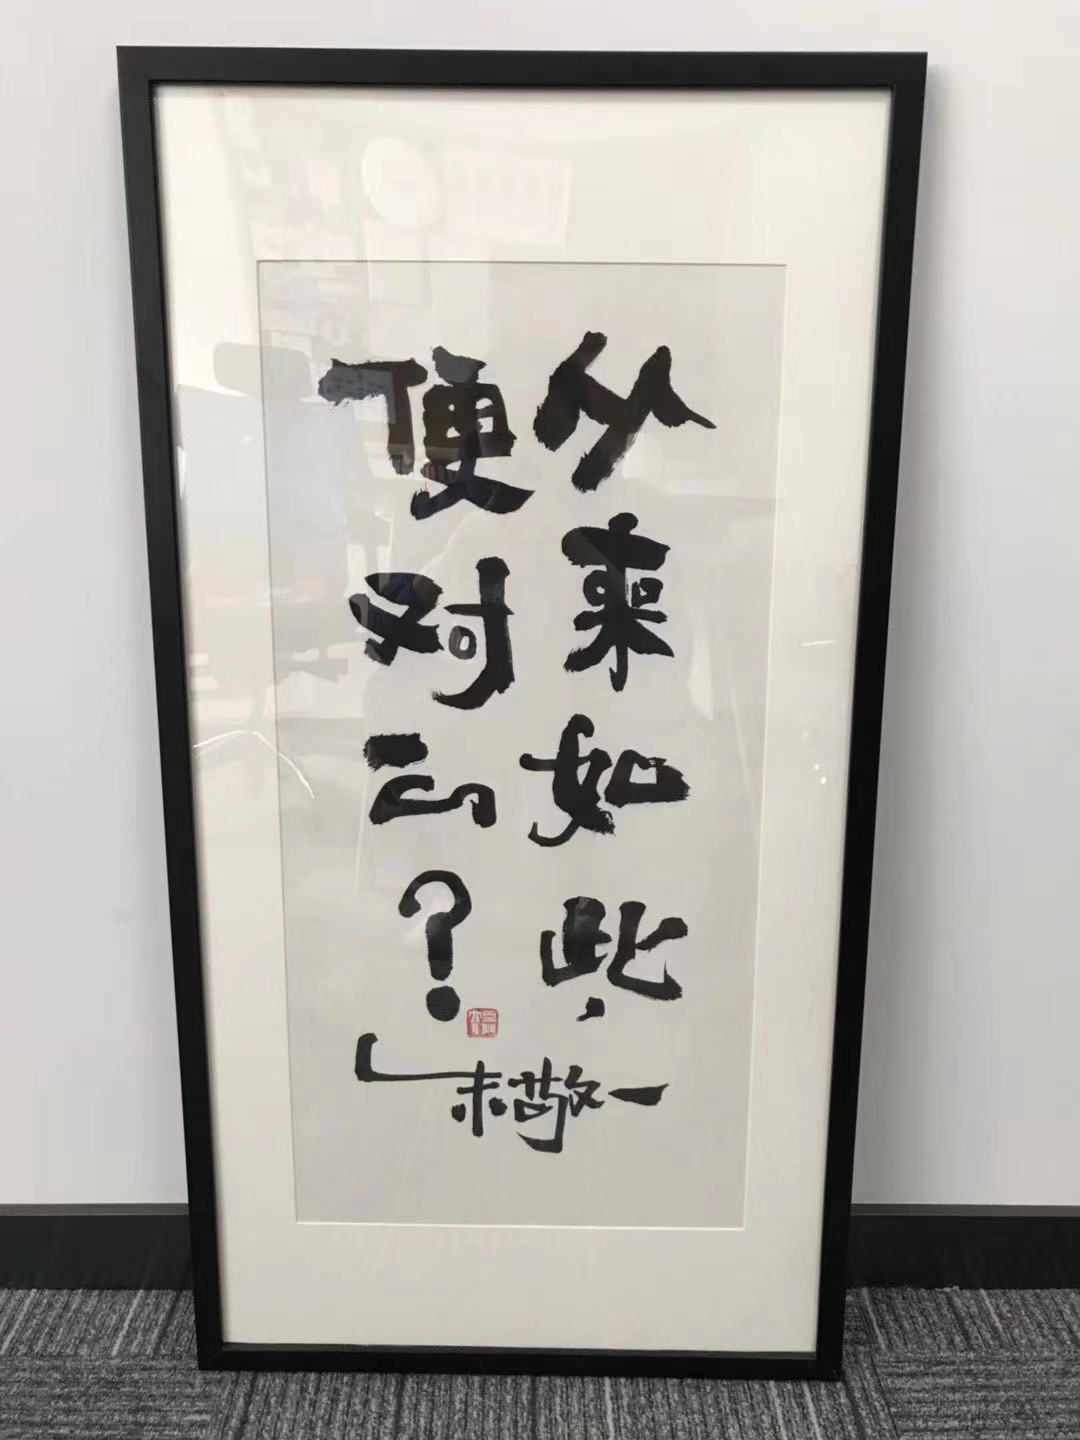 从来如此，
便对么？
朱敬一